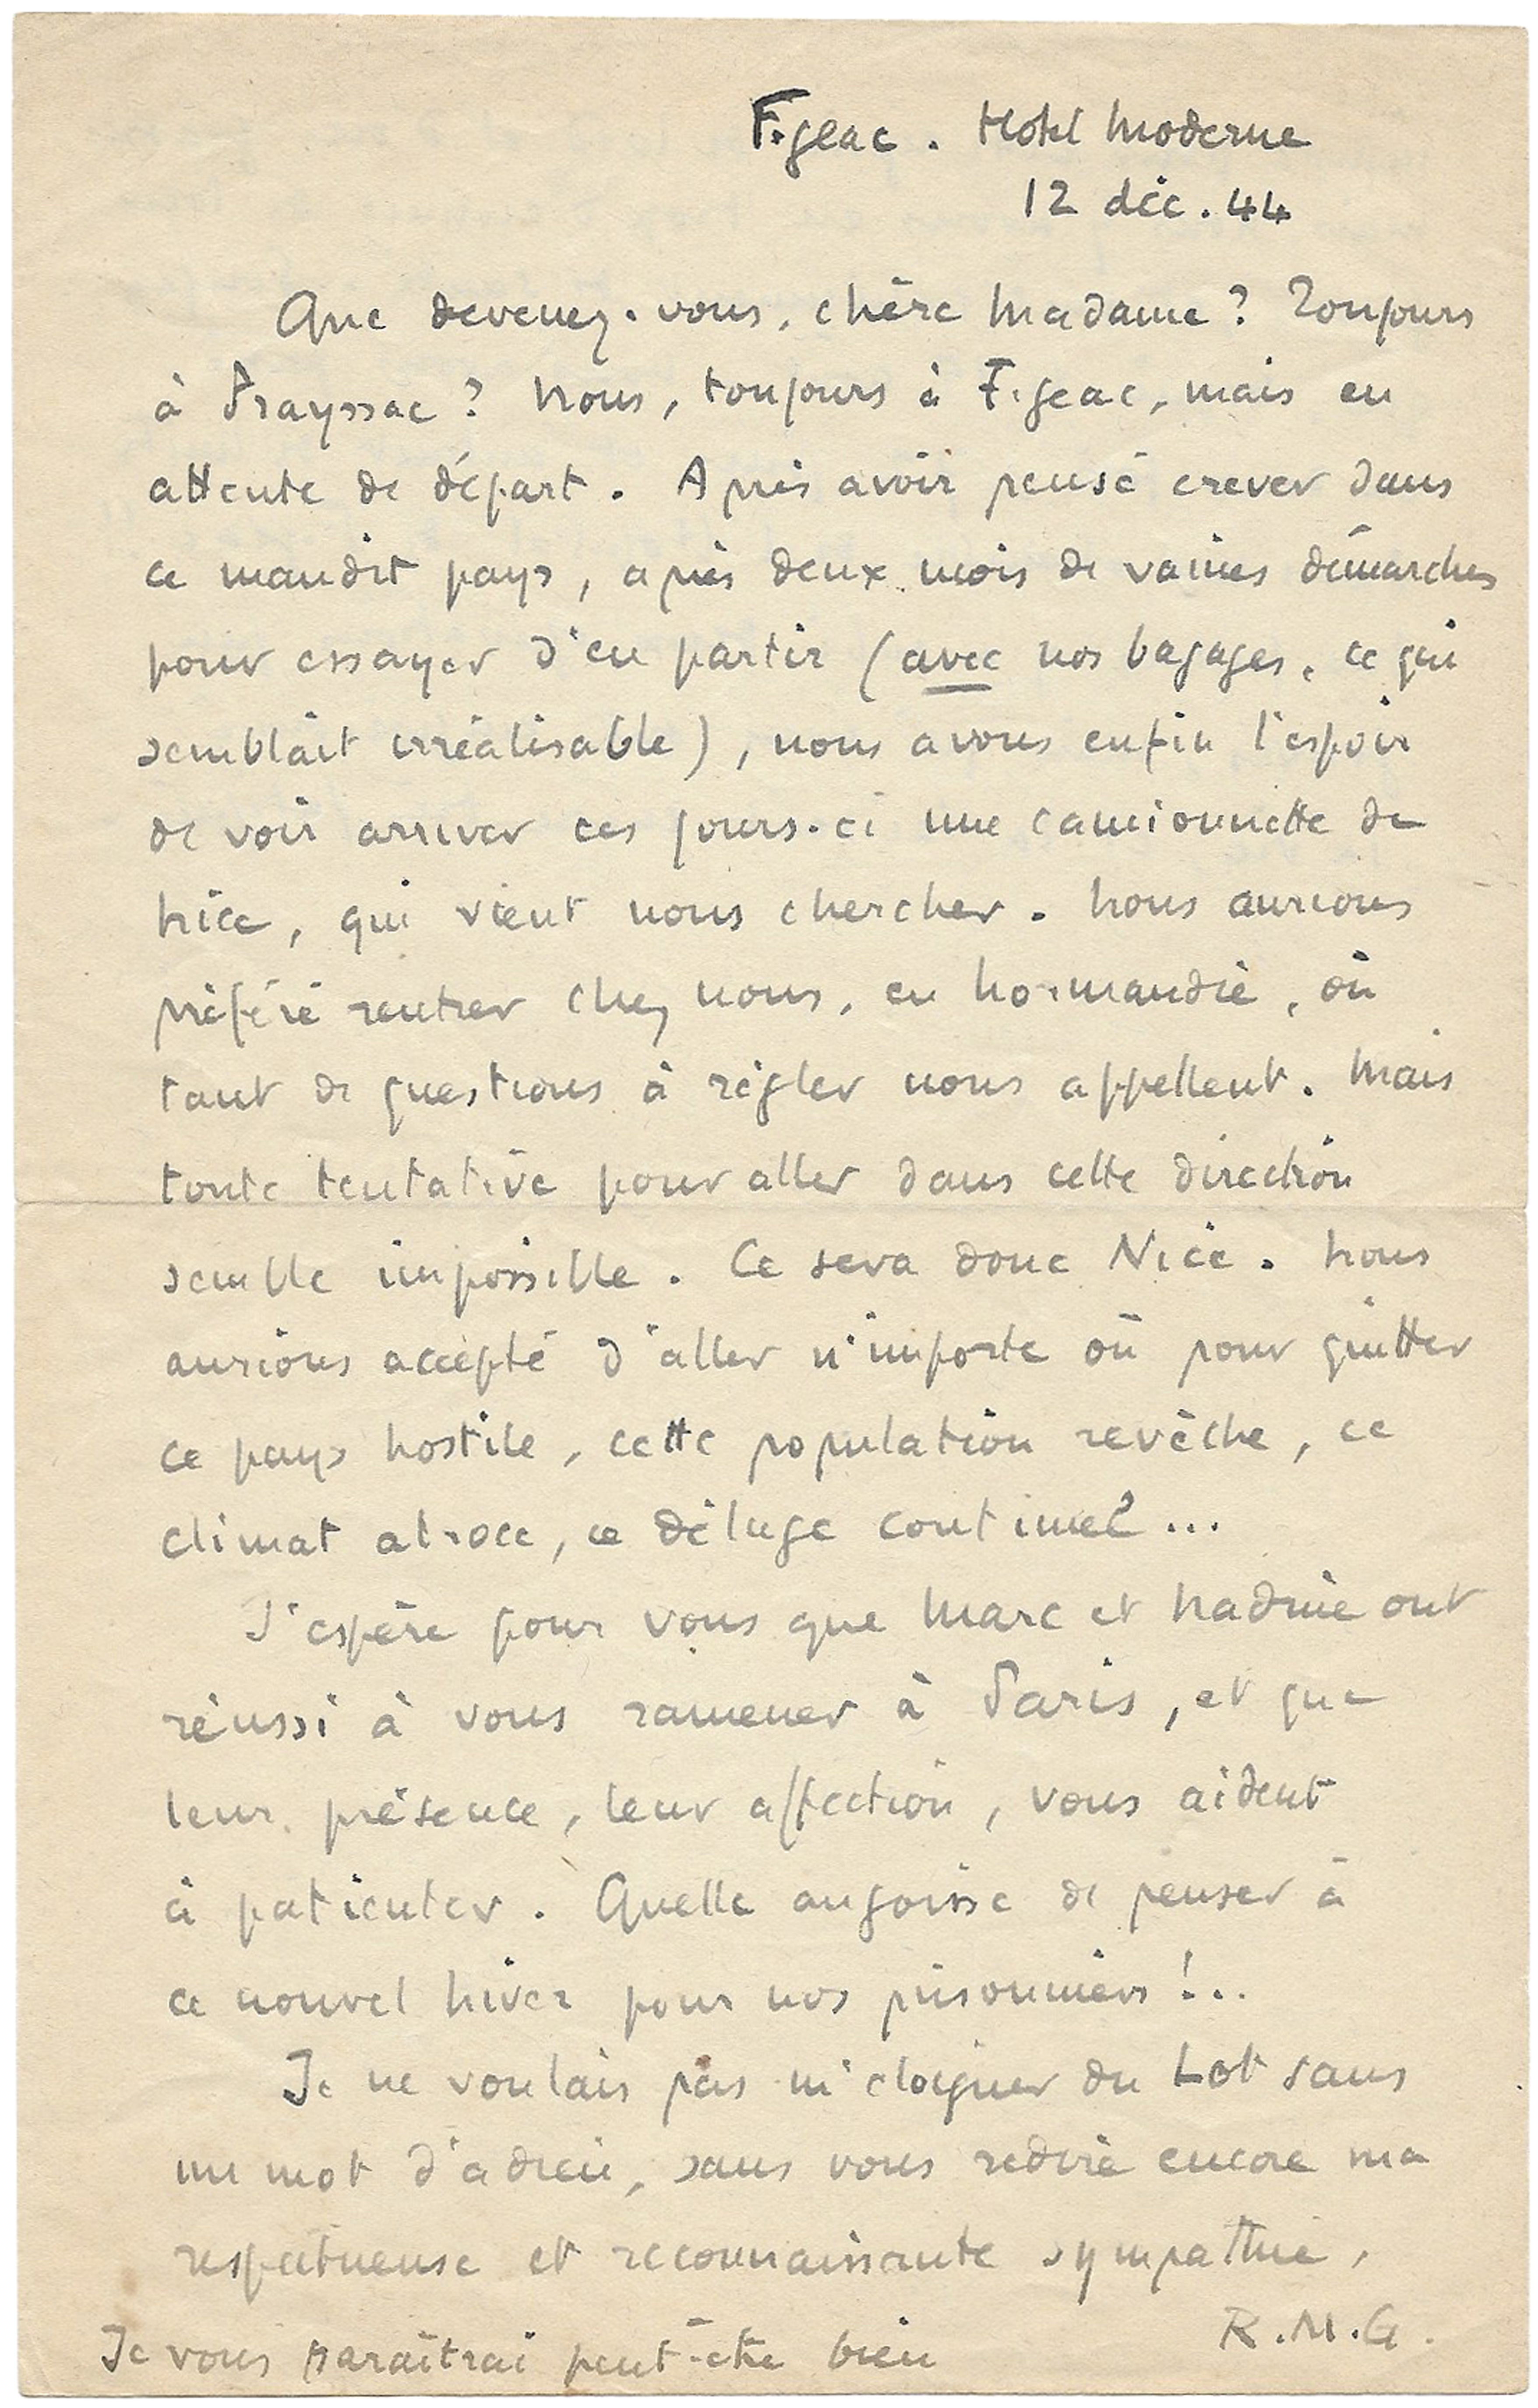 Figeac. Hotel Moderne
12 déc. 44
Que devenez-vous, chère Madame? Toujours
à Prayssac? Nous, toujours à Figeac, mais en
attente de départ. Après avoir pensé crever dans
ce maudit pays, après deux mois de vaines démarches
pour essayer d'en partir (avec nos bagages, ce qui
semblait irréalisable), nous avons enfin l'espoir
de voir arriver ces jours-ci une camionnette de
Nice, qui vient nous chercher. Nous aurions
préféré rentrer chez nous, en Normandie, où
tant de questions à régler nous appellent. Mais
toute tentative pour aller dans cette direction
semble impossible. Ce sera donc Nice. Nous
aurions accepté d'aller n'importe où pour quitter
ce pays hostile, cette population revêche, ce
climat atroce, ce déluge continuel...
J'espère pour vous que Marc et Nadine ont
réussi à vous ramener à Paris, et que
leur présence, leur affection, vous aident
à patienter. Quelle angoisse de penser à
ce nouvel hiver pour nos prisonniers!..
Je ne voulais pas m'éloigner du Lot sans
un mot d'adieu, sans vous redire encore ma
respectueuse et reconnaissante sympathie,
R.M.G.
Je vous paraîtrai peut-être bien